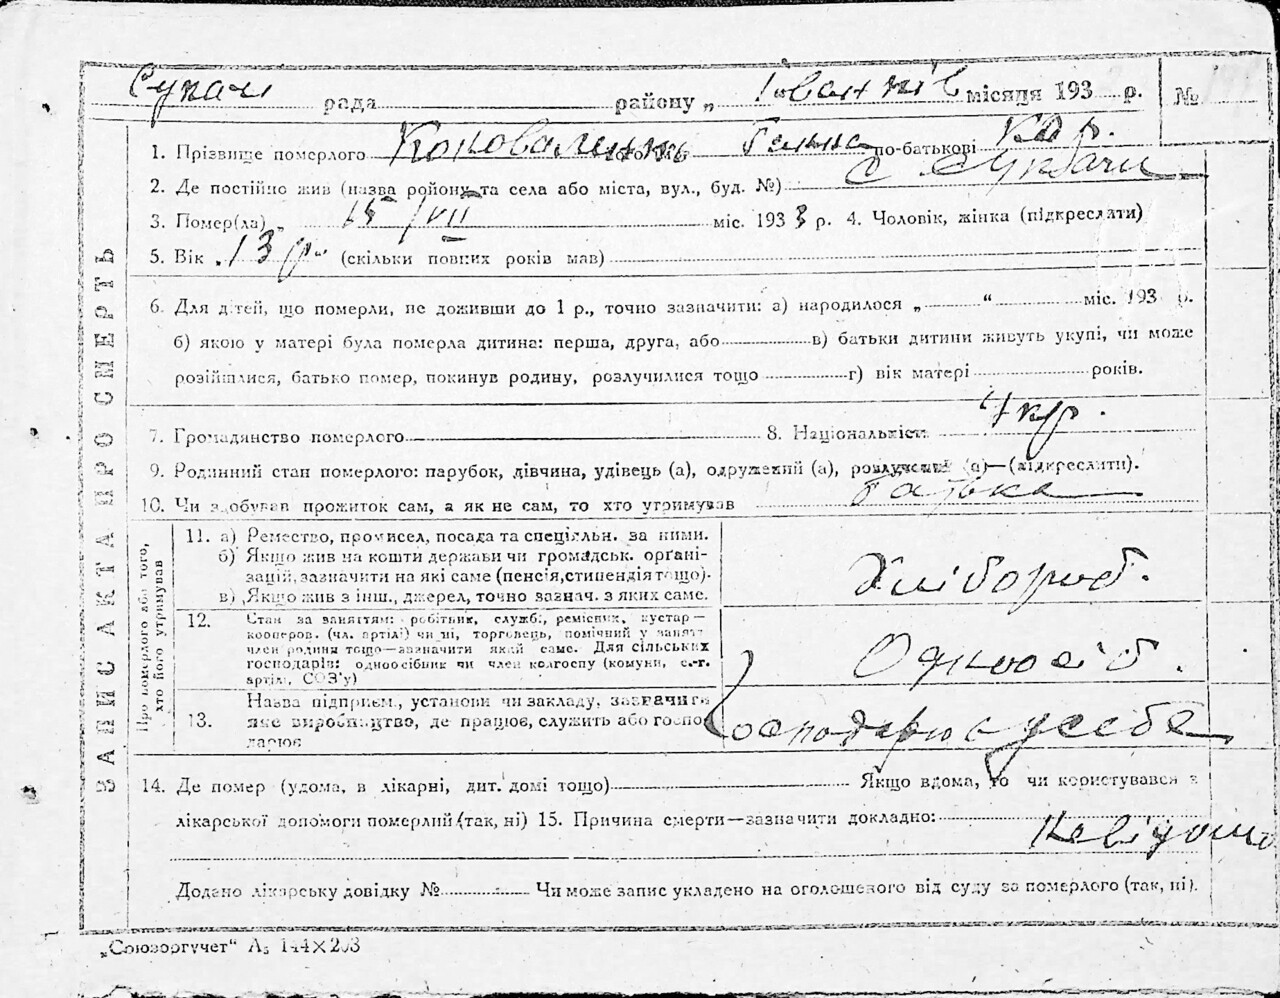 Сукачі рада району „ Іванків місяця 193 р. №
ЗАПИС АКТА ПРО СМЕРТЬ
1. Прізвище померлого Коноваленко Ганна по-батькові
2. Де постійно жив (назва району та села або міста, вул., буд. №) с Сукачи
3. Помер(ла) „ 15/VII міс. 1933 р. 4. Чоловік, жінка (підкреслити)
5. Вік 13 р. (скільки повних років мав)
6. Для дітей, що померли, не доживши до 1 р., точно зазначити: а) народилося „ “ міс. 193 р.
б) якою у матері була померла дитина: перша, друга, або в) батьки дитини живуть укупі, чи може
розійшлися, батько помер, покинув родину, розлучилися тощо г) вік матері років.
7. Громадянство померлого 8. Національність Укр.
9. Родинний стан померлого: парубок, дівчина, удівець (а), одружений (а), розлучений (а)—(підкреслити).
10. Чи здобував прожиток сам, а як не сам, то хто утримував батько
Про померлого або того, хто його утримував
11. а) Ремество, промисел, посада та спеціяльн. за ними.
б) Якщо жив на кошти держави чи громадськ. органі-
зацій, зазначити на які саме (пенсія, стипендія тощо).
в) Якщо жив з інш., джерел, точно зазнач. з яких саме.
Хлібороб.
12. Стан за заняттям: робітник, службі, ремісник, кустар—
кооперов. (чл. артілі) чи ні, торговець, помічний у занятт
член родини тощо—зазначити який саме. Для сільських
господарів: одноосібник чи член колгоспу (комуни, с.-г.
артілі, СОЗ'у)
Одноосіб.
13. Назва підприєм., установи чи закладу, зазначити
яке виробництво, де працює, служить або госпо-
дарює
Господарює у себе
14. Де помер (удома, в лікарні, дит. домі тощо) Якщо вдома, то чи користувався з
лікарської допомоги померлий (так, ні) 15. Причина смерти—зазначити докладно:
Невідомо
Додано лікарську довідку № Чи може запис укладено на оголошеного від суду за померлого (так, ні).
„Союзоргучет“ А5 144×203